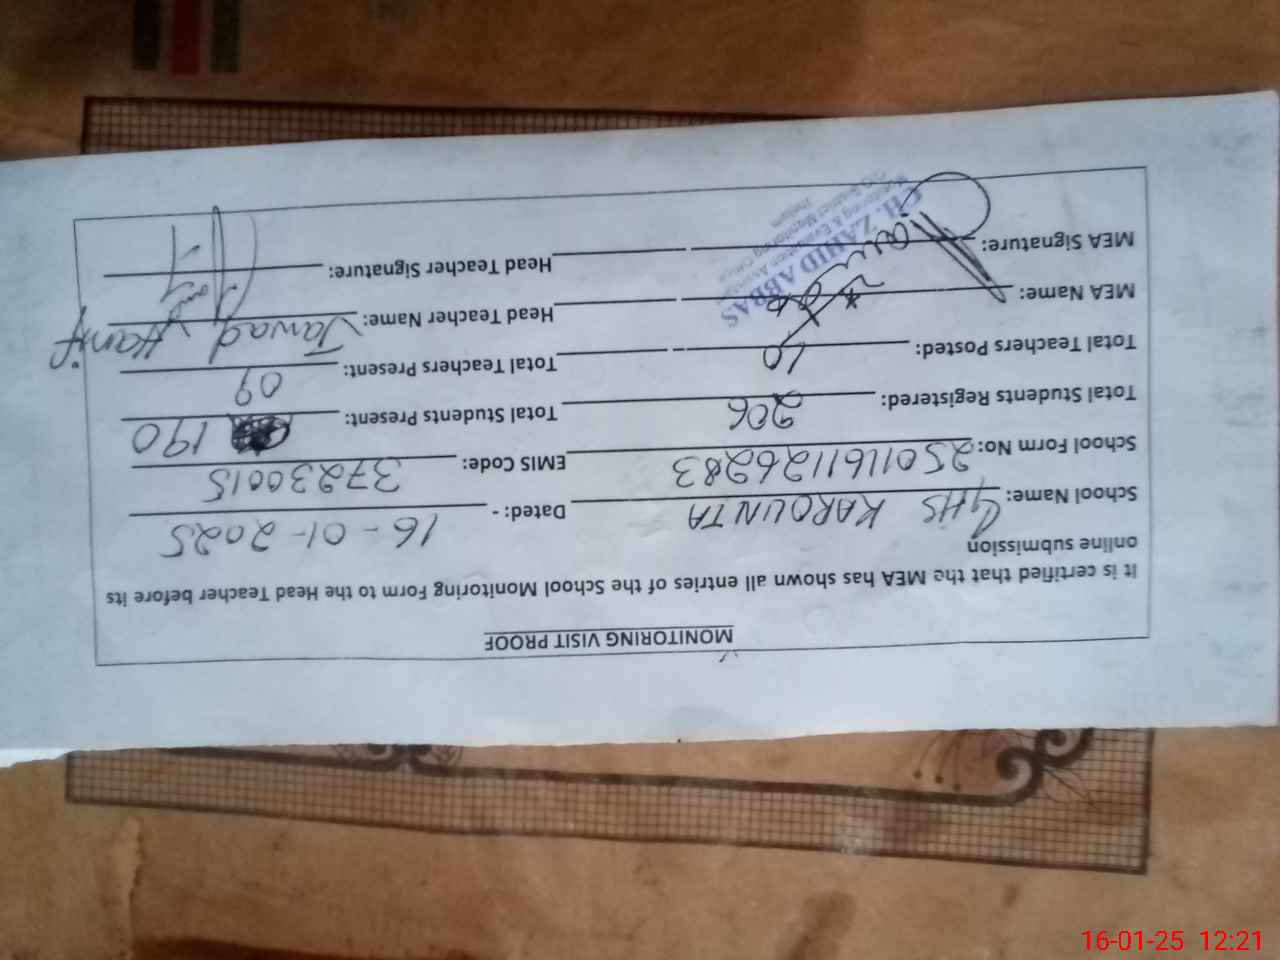 MONITORING VISIT PROOF
It is certified that the MEA has shown all entries of the School Monitoring Form to the Head Teacher before its
online submission
School Name: GHS KAROUNTA Dated: - 16-01-2025
School Form No: 250116112 6283 EMIS Code: 37230015
Total Students Registered: 206 Total Students Present: 190
Total Teachers Posted: 10 Total Teachers Present: 09
MEA Name: Head Teacher Name: Jawad Hanif
MEA Signature: Head Teacher Signature:
CH. ZAHID ABBAS
Monitoring & Evaluation Assistant
O/O District Monitoring Office
16-01-25 12:21